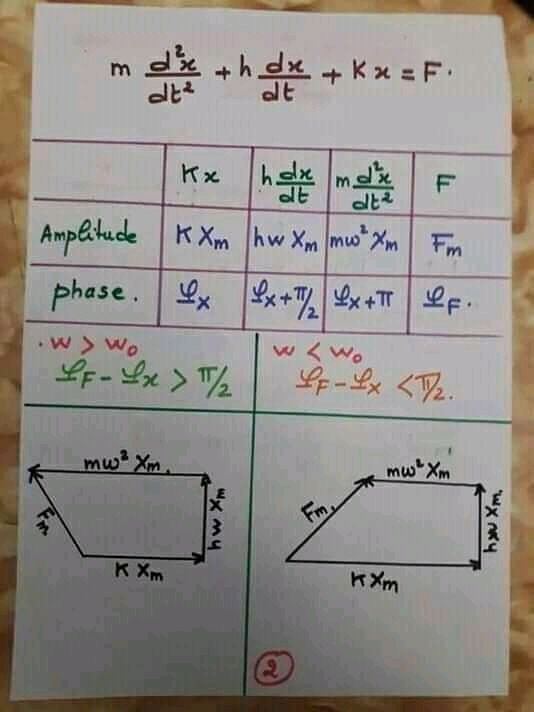 m d²x/dt² + h dx/dt + Kx = F.
Kx h dx/dt m d²x/dt² F
Amplitude K Xm hw Xm mw² Xm Fm
phase. φx φx + π/2 φx + π φF.
. w > w₀
φF - φx > π/2
w < w₀
φF - φx < π/2.
mw² Xm.
Fm
hw Xm
K Xm
mw² Xm
Fm.
hw Xm
K Xm
2